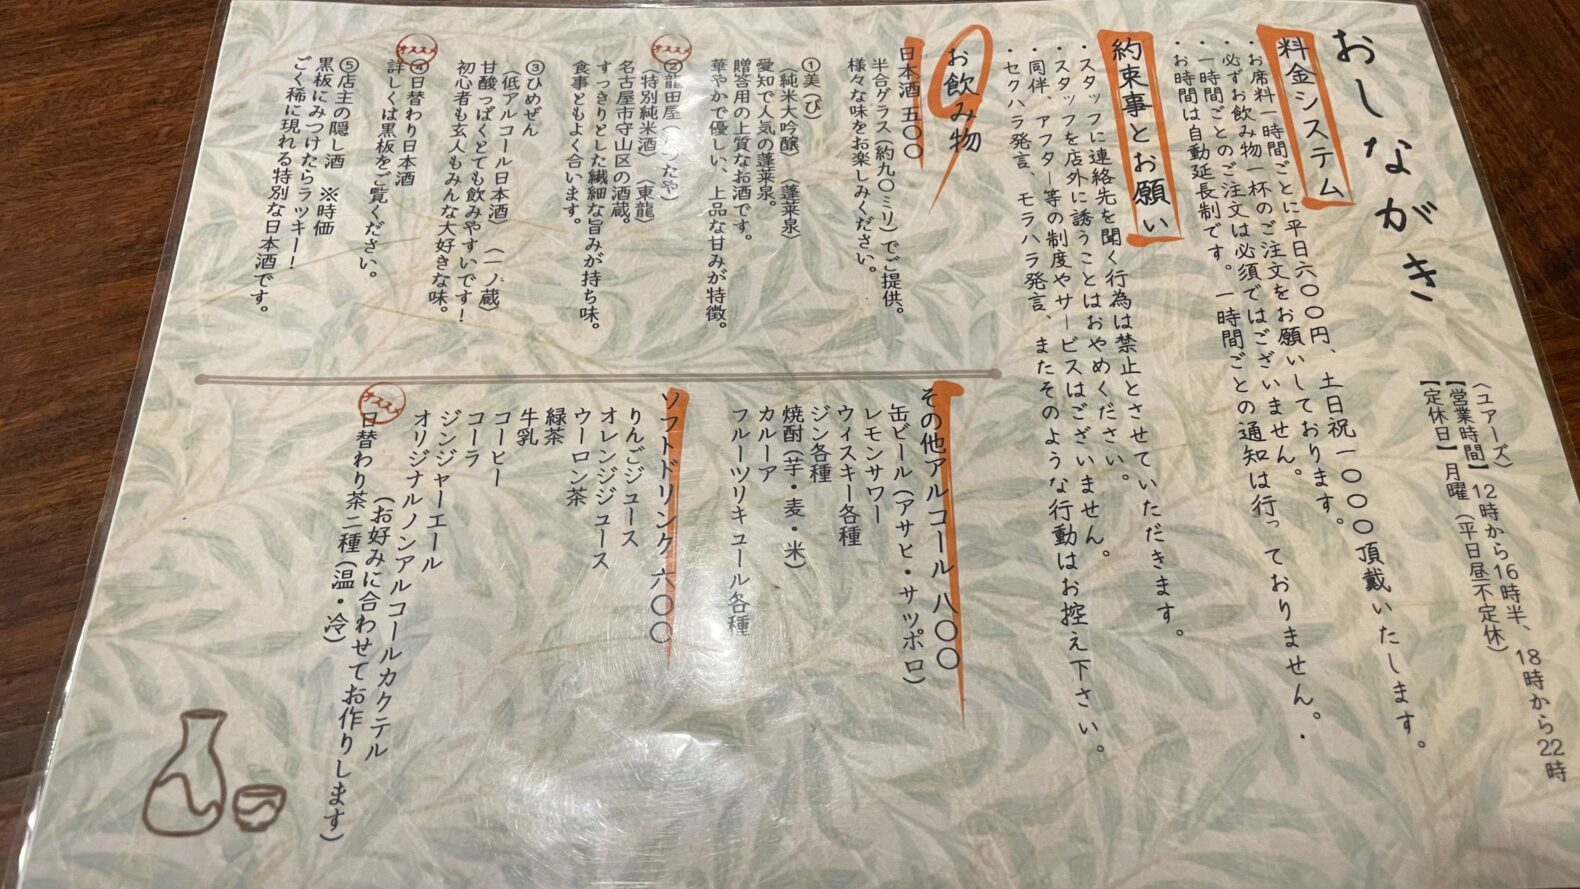 おしながき
〈ユアーズ〉
【営業時間】12時から16時半、18時から22時
【定休日】月曜（平日昼不定休）
料金システム
・お席料一時間ごとに平日六〇〇円、土日祝一〇〇〇頂戴いたします。
・必ずお飲み物一杯のご注文をお願いしております。
・一時間ごとのご注文は必須ではございません。
・お時間は自動延長制です。一時間ごとの通知は行っておりません。
約束事とお願い
・スタッフに連絡先を聞く行為は禁止とさせていただきます。
・スタッフを店外に誘うことはおやめください。
・同伴、アフター等の制度やサービスはございません。
・セクハラ発言、モラハラ発言、またそのような行動はお控え下さい。
お飲み物
日本酒 五〇〇
半合グラス（約九〇ミリ）でご提供。
様々な味をお楽しみください。
①美（び）
〈純米大吟醸〉〈蓬莱泉〉
愛知で人気の蓬莱泉。
贈答用の上質なお酒です。
華やかで優しい、上品な甘みが特徴。
オススメ
②龍田屋（たつたや）
〈特別純米酒〉〈東龍〉
名古屋市守山区の酒蔵。
すっきりとした繊細な旨みが持ち味。
食事ともよく合います。
③ひめぜん
〈低アルコール日本酒〉〈一ノ蔵〉
甘酸っぱくとても飲みやすいです！
初心者も玄人もみんな大好きな味。
オススメ
④日替わり日本酒
詳しくは黒板をご覧ください。
⑤店主の隠し酒 ※時価
黒板にみつけたらラッキー！
ごく稀に現れる特別な日本酒です。
その他アルコール 八〇〇
缶ビール（アサヒ・サッポロ）
レモンサワー
ウィスキー各種
ジン各種
焼酎（芋・麦・米）
カルーア
フルーツリキュール各種
ソフトドリンク 六〇〇
りんごジュース
オレンジジュース
ウーロン茶
緑茶
牛乳
コーヒー
コーラ
ジンジャーエール
オリジナルノンアルコールカクテル
（お好みに合わせてお作りします）
オススメ
日替わり茶二種（温・冷）